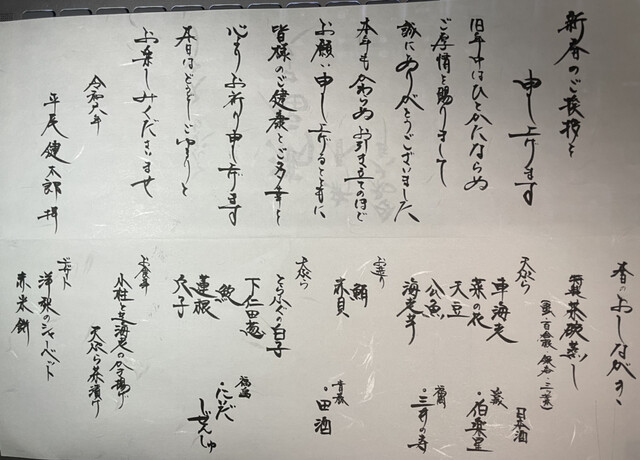 新春のご挨拶を
申し上げます
旧年中はひとかたならぬ
ご厚情を賜りまして
誠にありがとうございました
本年も変わらぬお引き立てのほど
お願い申し上げるとともに
皆様のご健康とご多幸を
心よりお祈り申し上げます
本日はどうぞごゆるりと
お楽しみくださいませ
令和八年
平尾健太郎 拝
春のおしながき
茶碗蒸し
天ぷら
車海老
菜の花
天豆
公魚
海老芋
お造り
鮪
赤貝
天ぷら
とらふぐの白子
下仁田葱
蓮根
穴子
お食事
小柱と芝海老のかき揚げ
天ぷら茶漬け
デザート
洋梨のシャーベット
赤米餅
日本酒
・伯楽星
福岡
・三井の寿
青森
・田酒
福島
・にいだ
しぜんしゅ